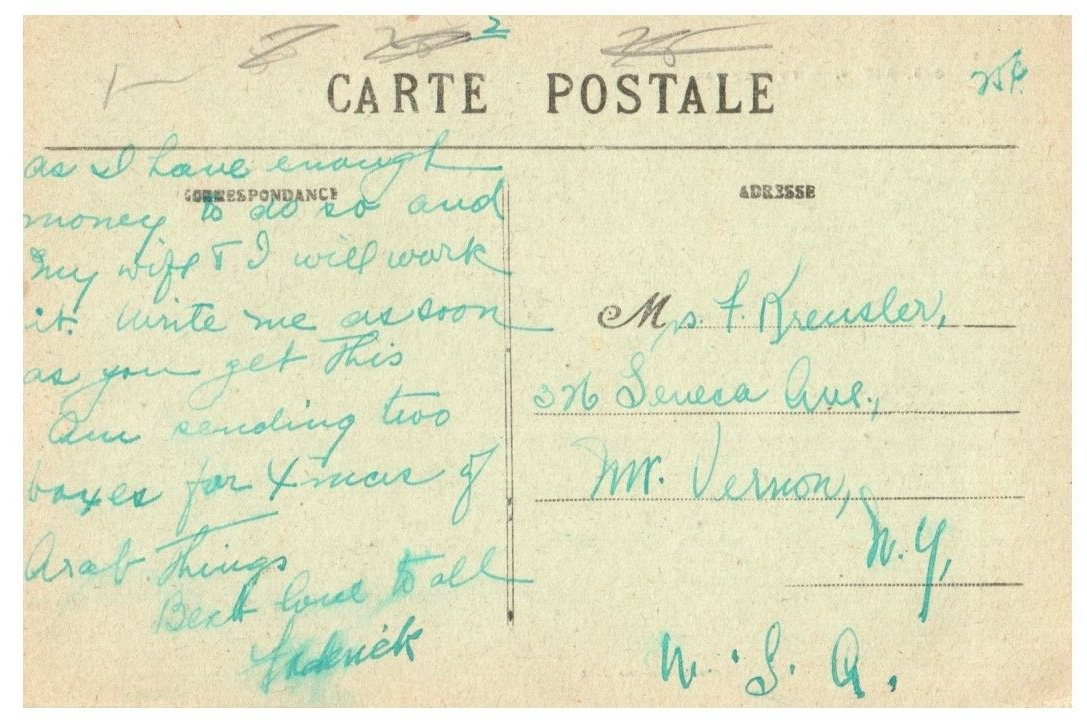 2
CARTE POSTALE
25¢
as I have enough
CORRESPONDANCE
money to do so and
my wife & I will work
it. Write me as soon
as you get this
Am sending two
boxes for Xmas of
Arab things
Best love to all
Frederick
ADRESSE
Mrs. F. Kreusler,
326 Seneca Ave.,
Mt. Vernon,
N.Y,
U.S.A.